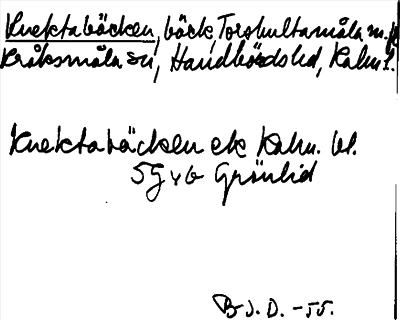 Knektabäcken, bäck, Torshultamåla m.fl.
Kråksmåla sn, Handbörds hd, Kalm. l.
Knektabäcken ek Kalm. bl.
5G v b Grönlid
B J. D. -55.